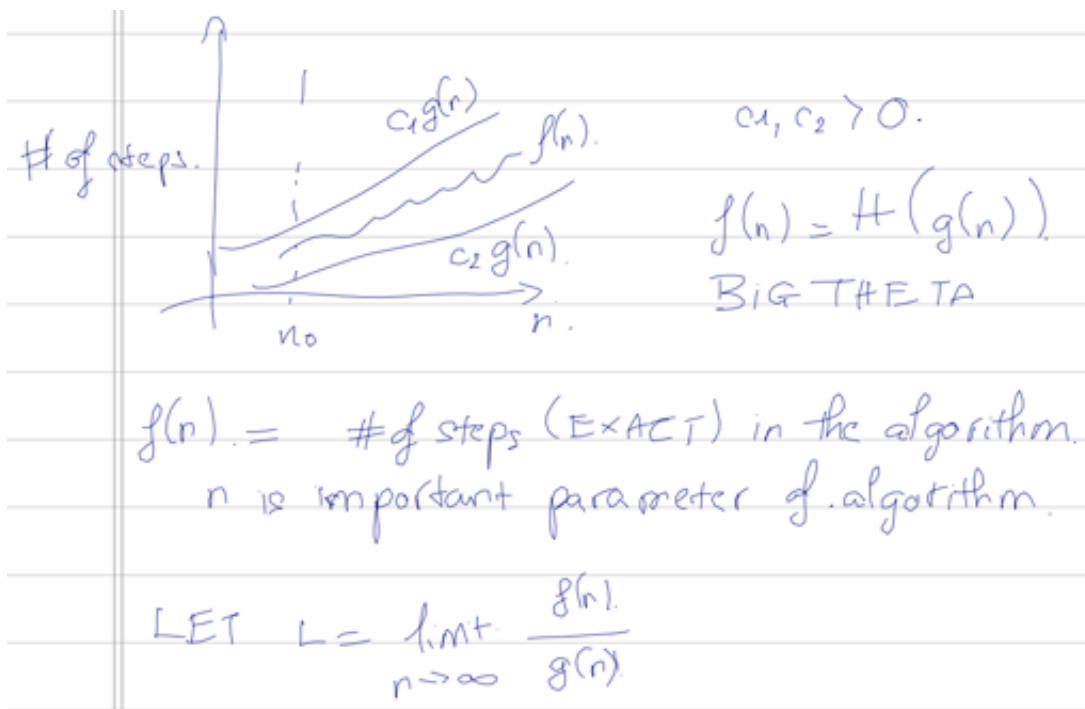 # of steps.
c1g(n)
f(n).
c2 g(n).
n0
n.
c1, c2 > 0.
f(n) = H (g(n))
BiG THETA
f(n). = # of steps (EXACT) in the algorithm.
n is important parameter of .algorithm.
LET L = limt f(n). / g(n).
n->∞